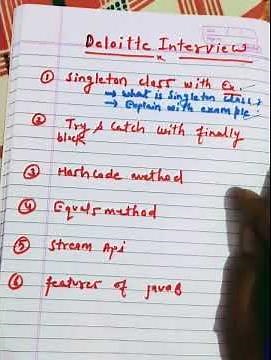 Deloitte Interview
① Singleton class with Ex.
→ what is Singleton class?
→ Explain with example.
② Try & catch with finally
block
③ Hashcode method
④ Equals method
⑤ Stream Api
⑥ features of java8